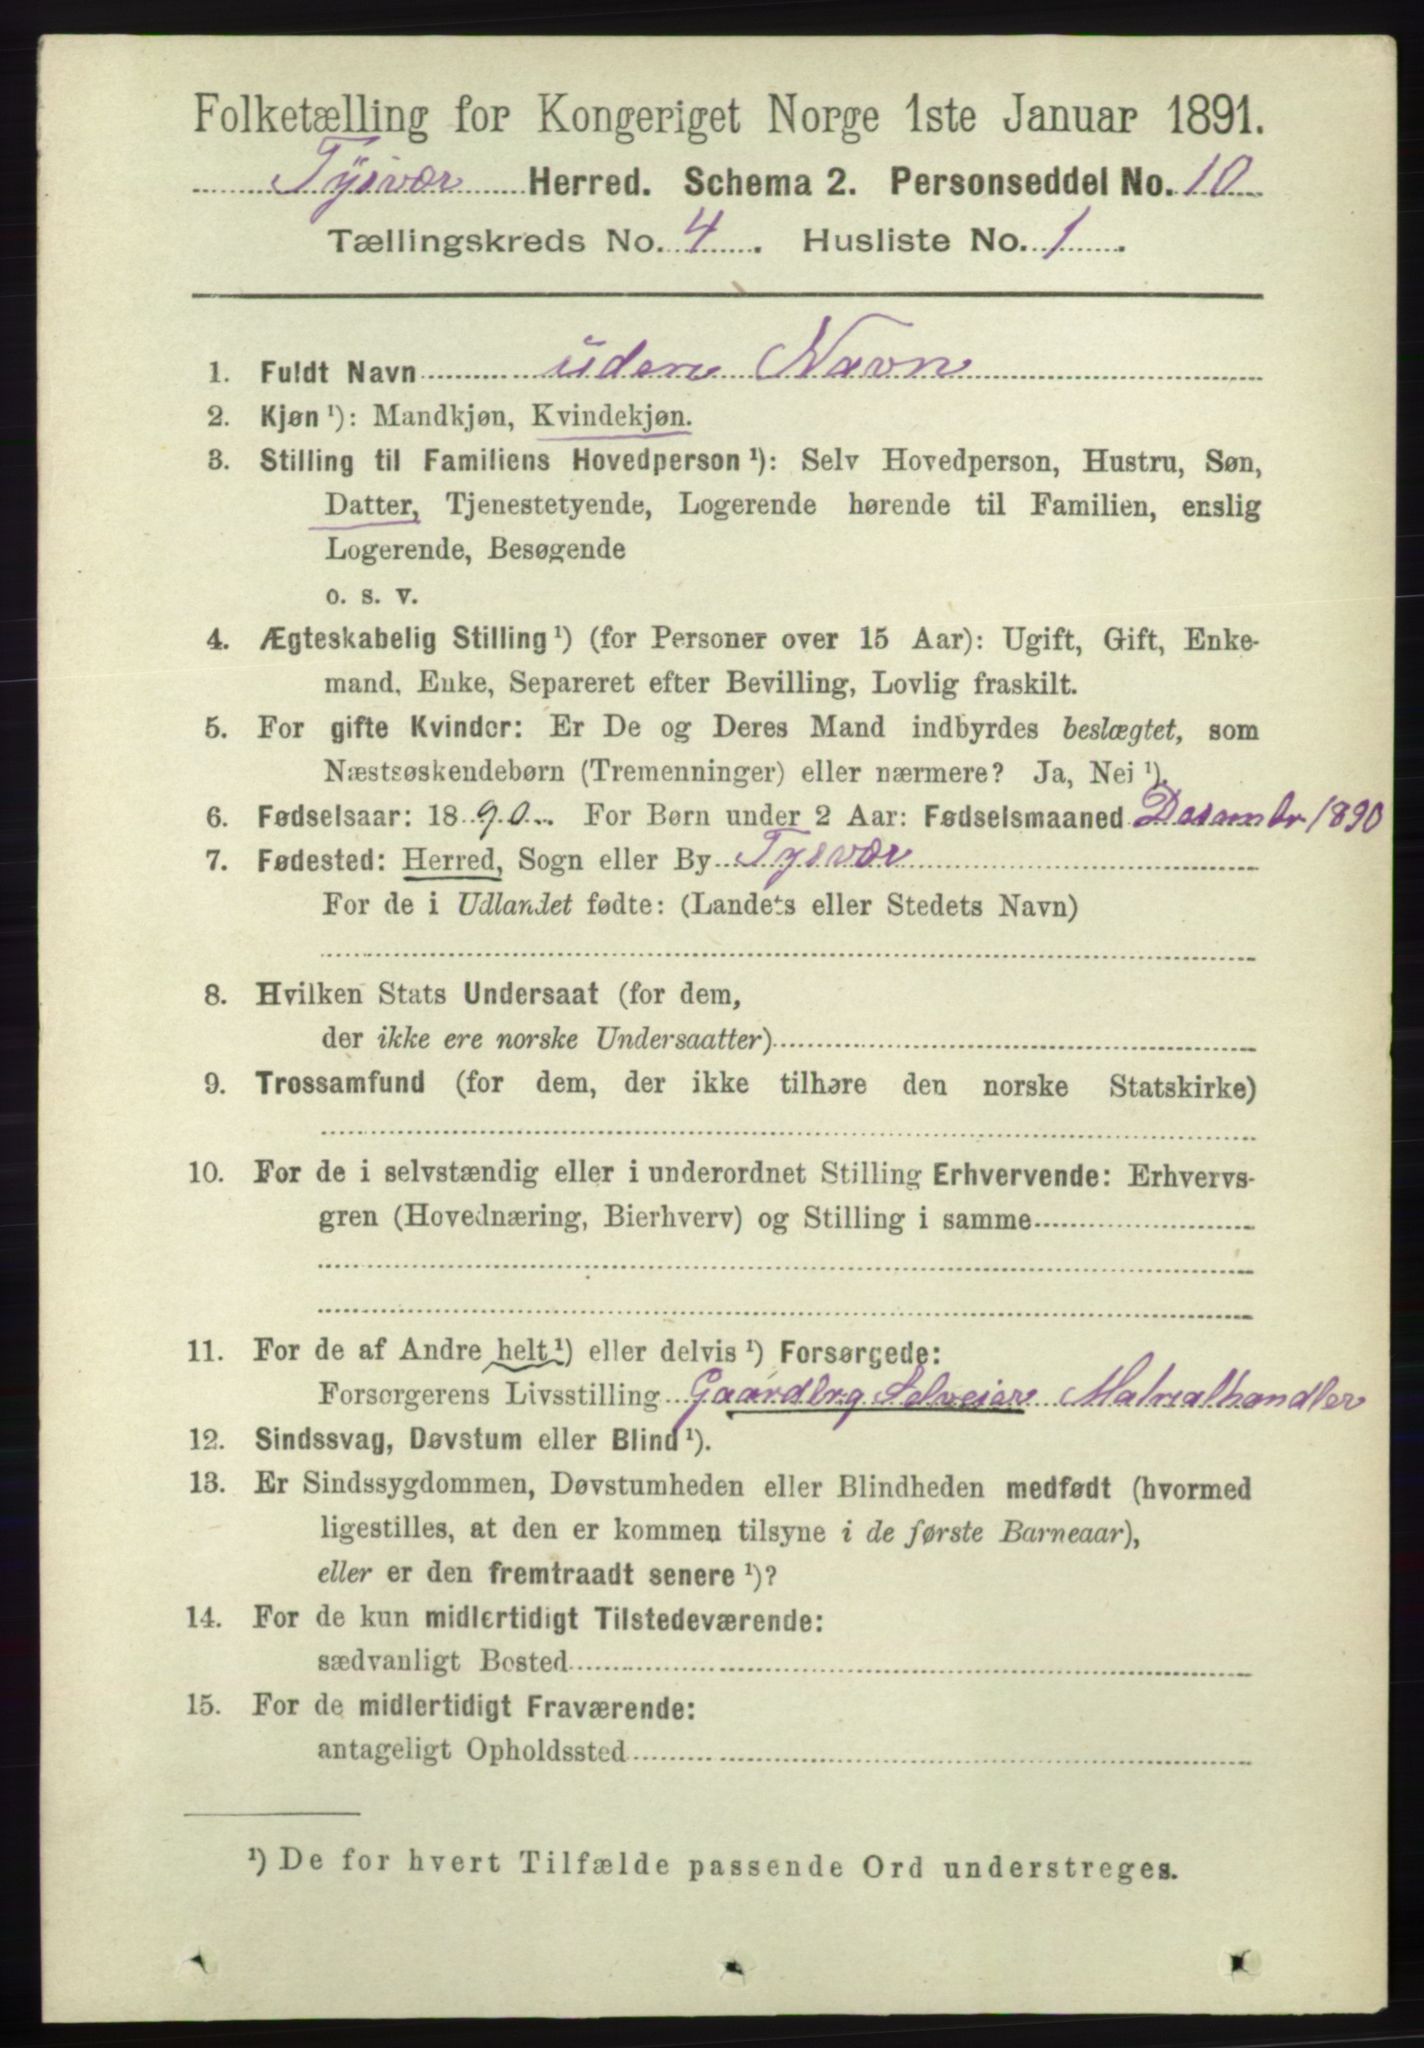 Folketælling for Kongeriget Norge 1ste Januar 1891.
Tysvær Herred. Schema 2. Personseddel No. 10
Tællingskreds No. 4. Husliste No. 1.
1. Fuldt Navn uden Navn
2. Kjøn ¹): Mandkjøn, Kvindekjøn.
3. Stilling til Familiens Hovedperson ¹): Selv Hovedperson, Hustru, Søn,
Datter, Tjenestetyende, Logerende hørende til Familien, enslig
Logerende, Besøgende
o. s. v.
4. Ægteskabelig Stilling ¹) (for Personer over 15 Aar): Ugift, Gift, Enke-
mand, Enke, Separeret efter Bevilling, Lovlig fraskilt.
5. For gifte Kvinder: Er De og Deres Mand indbyrdes beslægtet, som
Næstsøskendebørn (Tremenninger) eller nærmere? Ja, Nei ¹).
6. Fødselsaar: 1890. For Børn under 2 Aar: Fødselsmaaned Desember 1890
7. Fødested: Herred, Sogn eller By Tysvær
For de i Udlandet fødte: (Landets eller Stedets Navn)
8. Hvilken Stats Undersaat (for dem,
der ikke ere norske Undersaatter)
9. Trossamfund (for dem, der ikke tilhøre den norske Statskirke)
10. For de i selvstændig eller i underordnet Stilling Erhvervende: Erhvervs-
gren (Hovednæring, Bierhverv) og Stilling i samme
11. For de af Andre helt ¹) eller delvis ¹) Forsørgede:
Forsørgerens Livsstilling Gaardbrg Selveier
12. Sindssvag, Døvstum eller Blind ¹).
13. Er Sindssygdommen, Døvstumheden eller Blindheden medfødt (hvormed
ligestilles, at den er kommen tilsyne i de første Barneaar),
eller er den fremtraadt senere ¹)?
14. For de kun midlertidigt Tilstedeværende:
sædvanligt Bosted
15. For de midlertidigt Fraværende:
antageligt Opholdssted
¹) De for hvert Tilfælde passende Ord understreges.